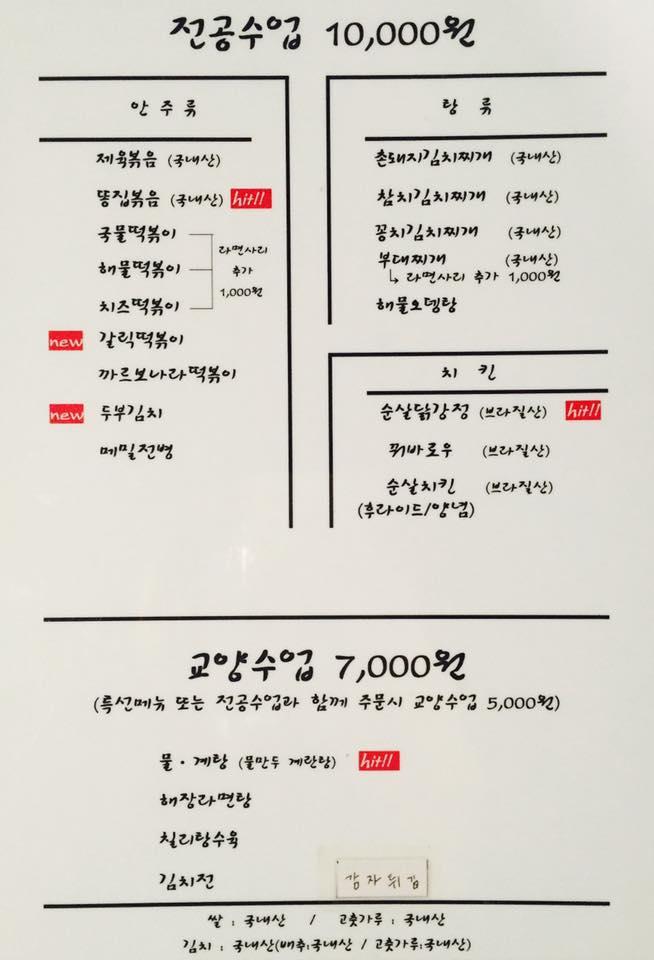 전공수업 10,000원
안 주 류
제육볶음 (국내산)
똥집볶음 (국내산) hit!!
국물떡볶이
해물떡볶이
치즈떡볶이
라면사리
추가
1,000원
new 갈릭떡볶이
까르보나라떡볶이
new 두부김치
메밀전병
탕 류
촌돼지김치찌개 (국내산)
참치김치찌개 (국내산)
꽁치김치찌개 (국내산)
부대찌개 (국내산)
↳ 라면사리 추가 1,000원
해물오뎅탕
치 킨
순살닭강정 (브라질산) hit!!
꿔바로우 (브라질산)
순살치킨 (브라질산)
(후라이드/양념)
교양수업 7,000원
(특선메뉴 또는 전공수업과 함께 주문시 교양수업 5,000원)
물·계탕 (물만두 계란탕) hit!!
해장라면탕
칠리탕수육
김치전
감자튀김
쌀 : 국내산 / 고춧가루 : 국내산
김치 : 국내산(배추:국내산 / 고춧가루:국내산)